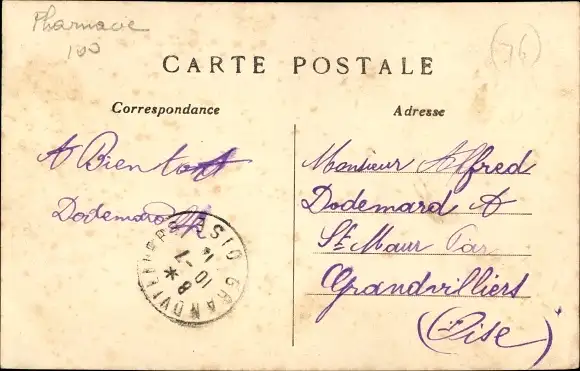 Pharmacie
100
(76)
CARTE POSTALE
Correspondance
Adresse
A Bientot
Dodemard A
Monsieur Alfred
Dodemard A
St Maur Par
Grandvilliers
(Oise)
GRANDVILLIERS OISE
8
10 - 7
14